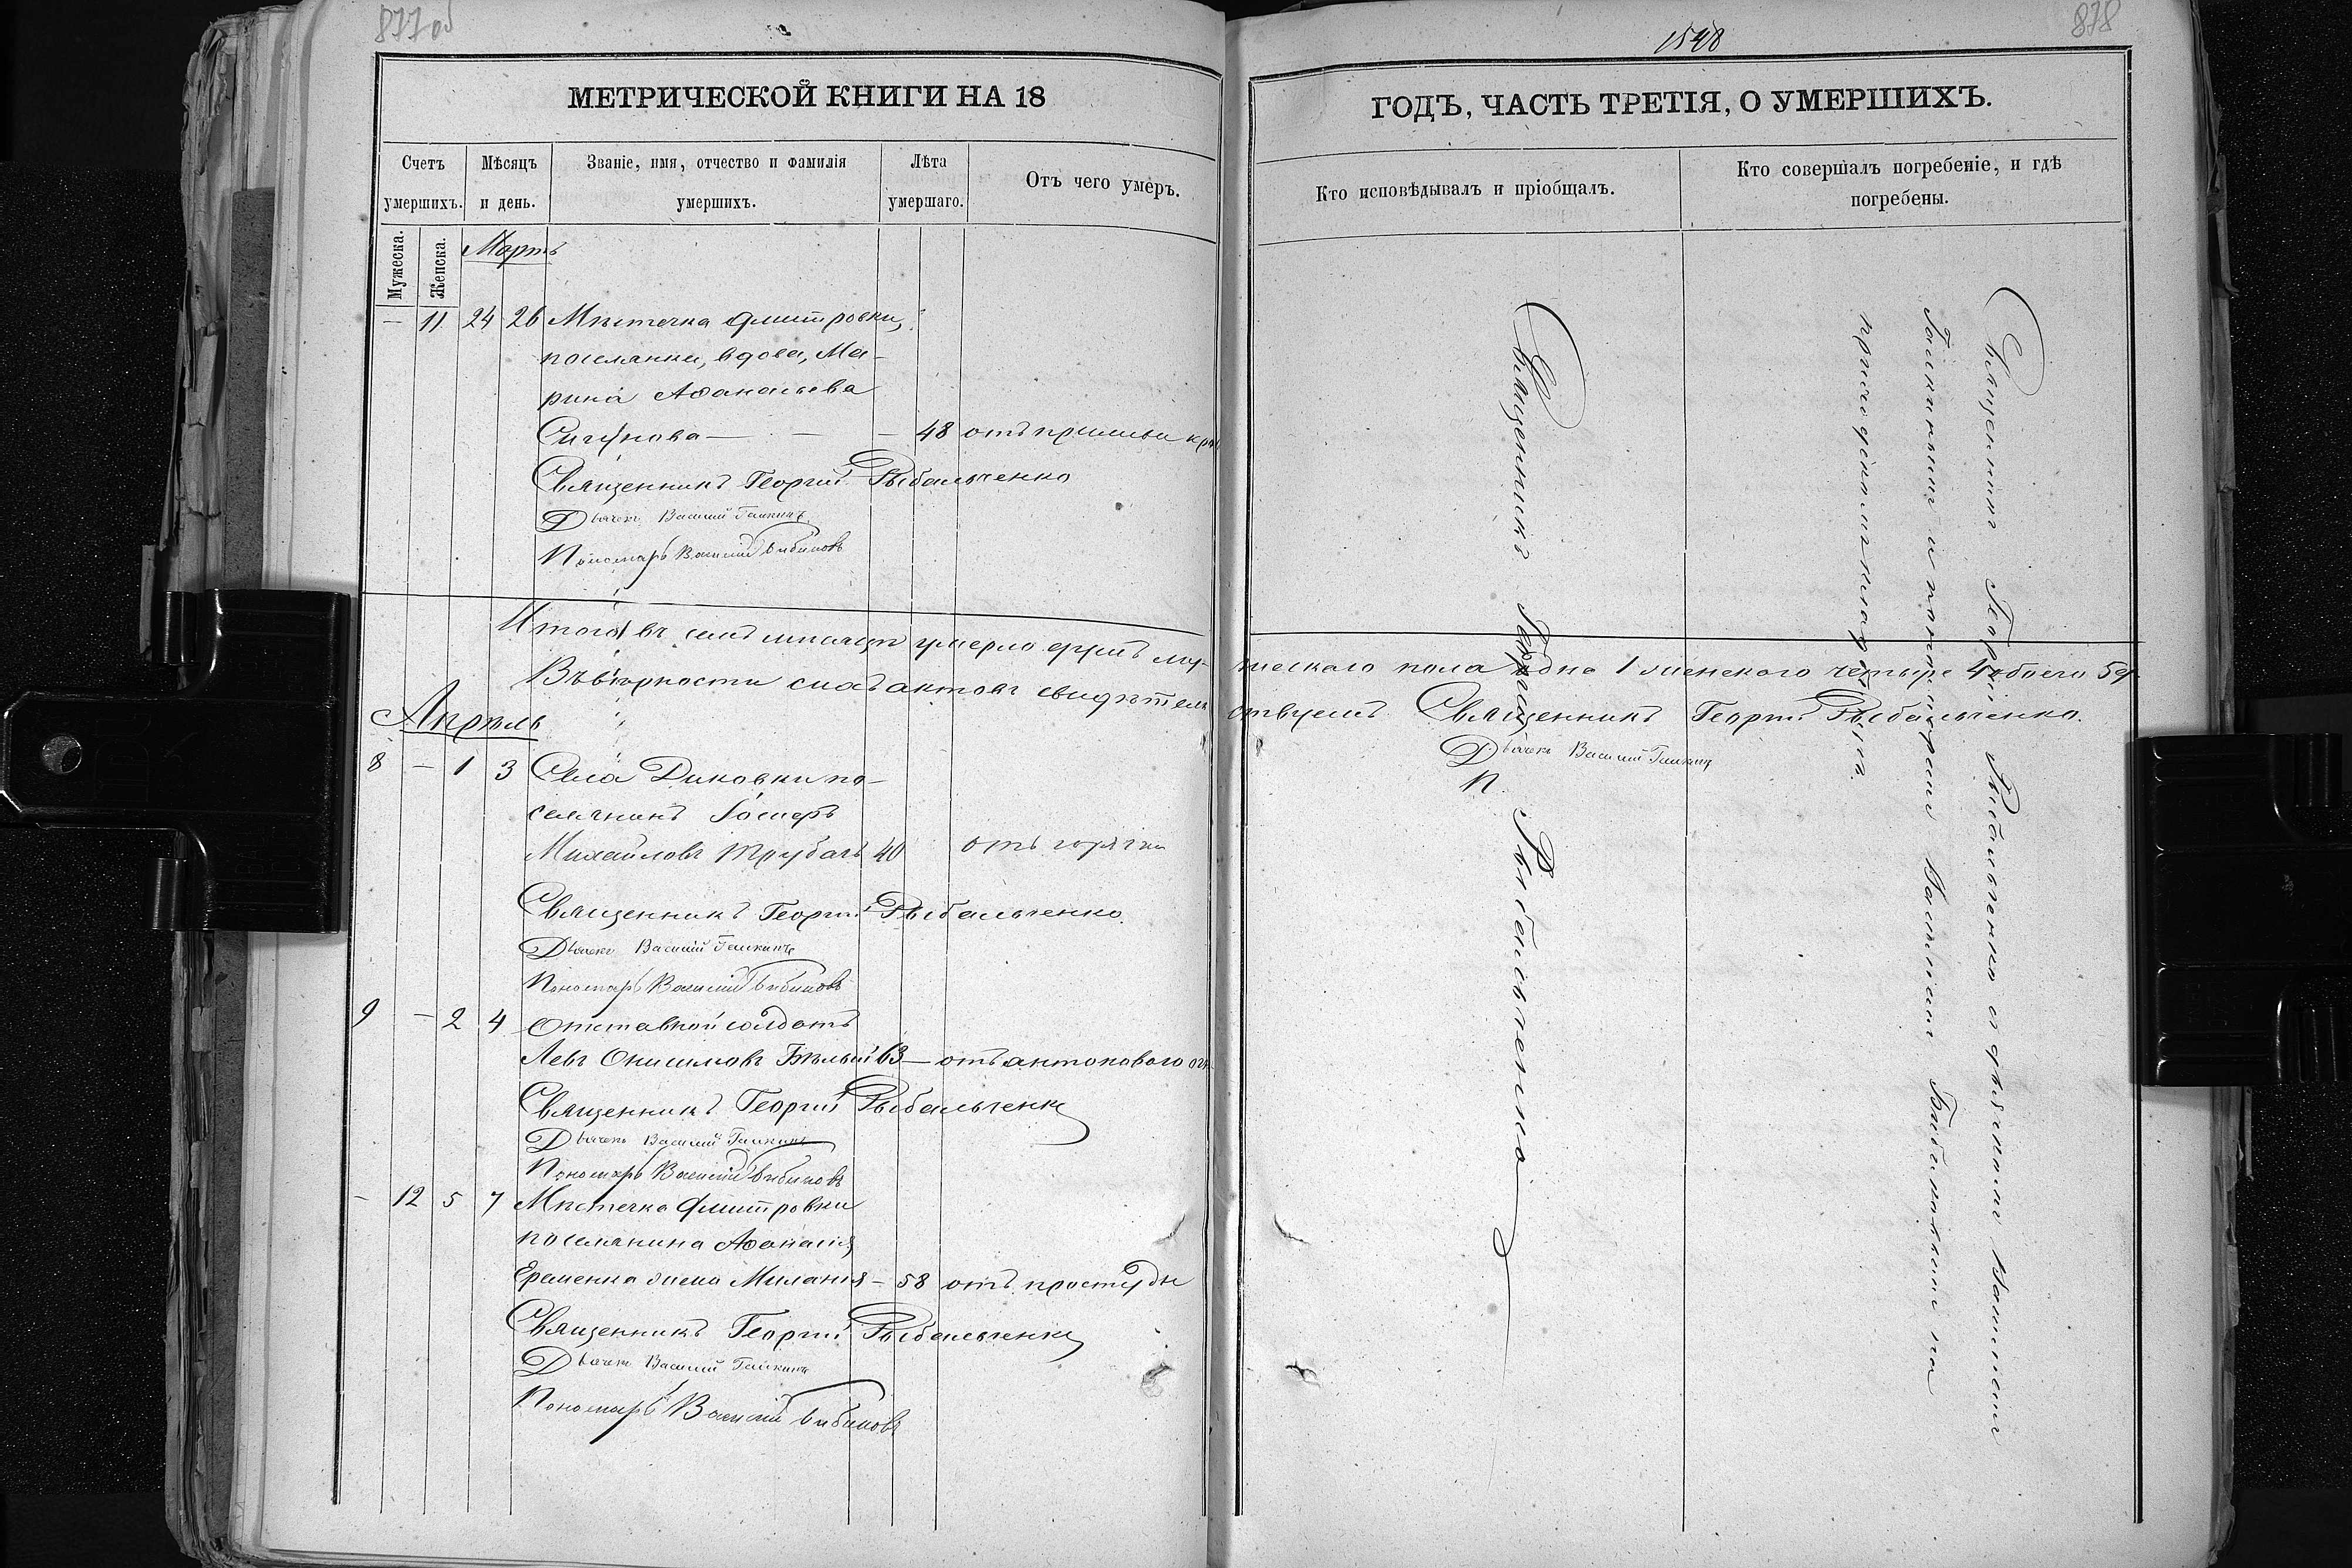 877 об
МЕТРИЧЕСКОЙ КНИГИ НА 18
Счетъ умершихъ.
Мѣсяцъ и день.
Званіе, имя, отчество и фамилія умершихъ.
Лѣта умершаго.
Отъ чего умеръ.
Мужеска.
Женска.
Мартъ
— 11 24 26 Мѣстечка Дмитровки,
поселянка, вдова, Ма-
рина Аѳанасьева
— — 48 отъ
Священникъ Георгій Рыбальченко
Дьячекъ Василій Галкинъ
Пономарь Василій Бибиковъ
Итого въ семъ мѣсяцѣ умерло душъ му-
Въ вѣрности сихъ актовъ свидѣтель
Апрѣль
8 — 1 3 Села Диковки по-
селянинъ
Михайловъ Трубачъ 40 отъ горячки
Священникъ Георгій Рыбальченко.
Дьячекъ Василій Галкинъ
Пономарь Василій Бибиковъ
9 — 2 4 Отставной солдатъ
Левъ Онисимовъ Бѣлый 63 — отъ антонового огн
Священникъ Георгій Рыбальченко
Дьячекъ Василій Галкинъ
Пономарь Василій Бибиковъ
— 12 5 7 Мѣстечка Дмитровки
поселянина Аѳанасія
Еременка жена Миланія — 58 отъ простуды
Священникъ Георгій Рыбальченко
Дьячекъ Василій Галкинъ
Пономарь Василій Бибиковъ
878
1548
ГОДЪ, ЧАСТЬ ТРЕТІЯ, О УМЕРШИХЪ.
Кто исповѣдывалъ и пріобщалъ.
Кто совершалъ погребеніе, и гдѣ погребены.
Священникъ Георгій Рыбальченко
Священникъ Георгій Рыбальченко съ дьячкомъ Василіемъ
Галкинымъ и пономаремъ Василіемъ Бибиковымъ на
приходскомъ кладбищѣ.
жескаго пола одна 1 женского четыре 4 обоего 5 д.
ствуемъ Священникъ Георгій Рыбальченко.
Дьячекъ Василій Галкинъ
П.